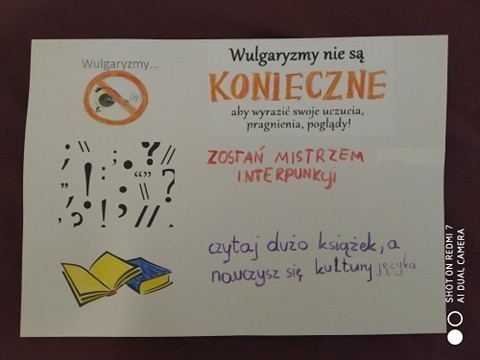 Wulgaryzmy...
Wulgaryzmy nie są
KONIECZNE
aby wyrazić swoje uczucia,
pragnienia, poglądy!
ZOSTAŃ MISTRZEM
INTERPUNKcji
czytaj dużo książek, a
nauczysz się kultury języka
SHOT ON REDMI 7
AI DUAL CAMERA